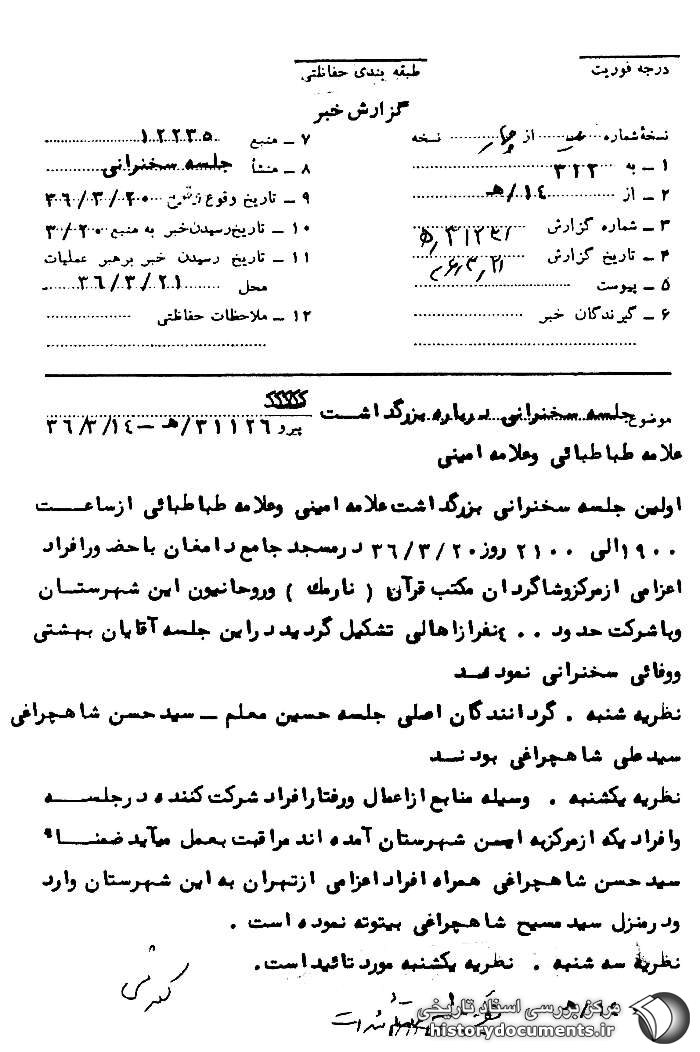 درجه فوریت
طبقه بندی حفاظتی
گزارش خبر
نسخهٔ شماره از چهار نسخه
۱ ـ به ۳۲۲
۲ ـ از ۱۴/هـ
۳ ـ شماره گزارش
۴ ـ تاریخ گزارش
۵ ـ پیوست
۶ ـ گیرندگان خبر
۷ ـ منبع ۱۲۲۳۵
۸ ـ منشأ جلسه سخنرانی
۹ ـ تاریخ وقوع ۳۶/۳/۲۰
۱۰ ـ تاریخ رسیدن خبر به منبع ۳۰/۲۰
۱۱ ـ تاریخ رسیدن خبر برهبر عملیات
محل ۳۶/۳/۲۱
۱۲ ـ ملاحظات حفاظتی
موضوع جلسه سخنرانی درباره بزرگداشت
پیرو ۳۱۱۲۶/هـ ـ ۳۶/۳/۱۴
علامه طباطبائی وعلامه امینی
اولین جلسه سخنرانی بزرگداشت علامه امینی وعلامه طباطبائی ازساعت
۱۹۰۰ الی ۲۱۰۰ روز ۳۶/۳/۲۰ درمسجد جامع دامغان باحضور افراد
اعزامی ازمرکز وشاگردان مکتب قرآن ( نارمک ) وروحانیون این شهرستان
وباشرکت حدود ۴۰۰ نفرازاهالی تشکیل گردید دراین جلسه آقایان بهشتی
ووفائی سخنرانی نمودند
نظریه شنبه . گردانندگان اصلی جلسه حسین معلم ـ سیدحسن شاهچراغی
سیدعلی شاهچراغی بودند
نظریه یکشنبه . وسیله منابع ازاعمال ورفتار افراد شرکت کننده درجلسه
وافرادیکه ازمرکز به این شهرستان آمده اند مراقبت بعمل میآید ضمناً
سیدحسن شاهچراغی همراه افراد اعزامی ازتهران به این شهرستان وارد
ودرمنزل سیدمسیح شاهچراغی بیتوته نموده است .
نظریهٔ سه شنبه . نظریه یکشنبه مورد تائیداست .
مرکز بررسی اسناد تاریخی
historydocuments.ir